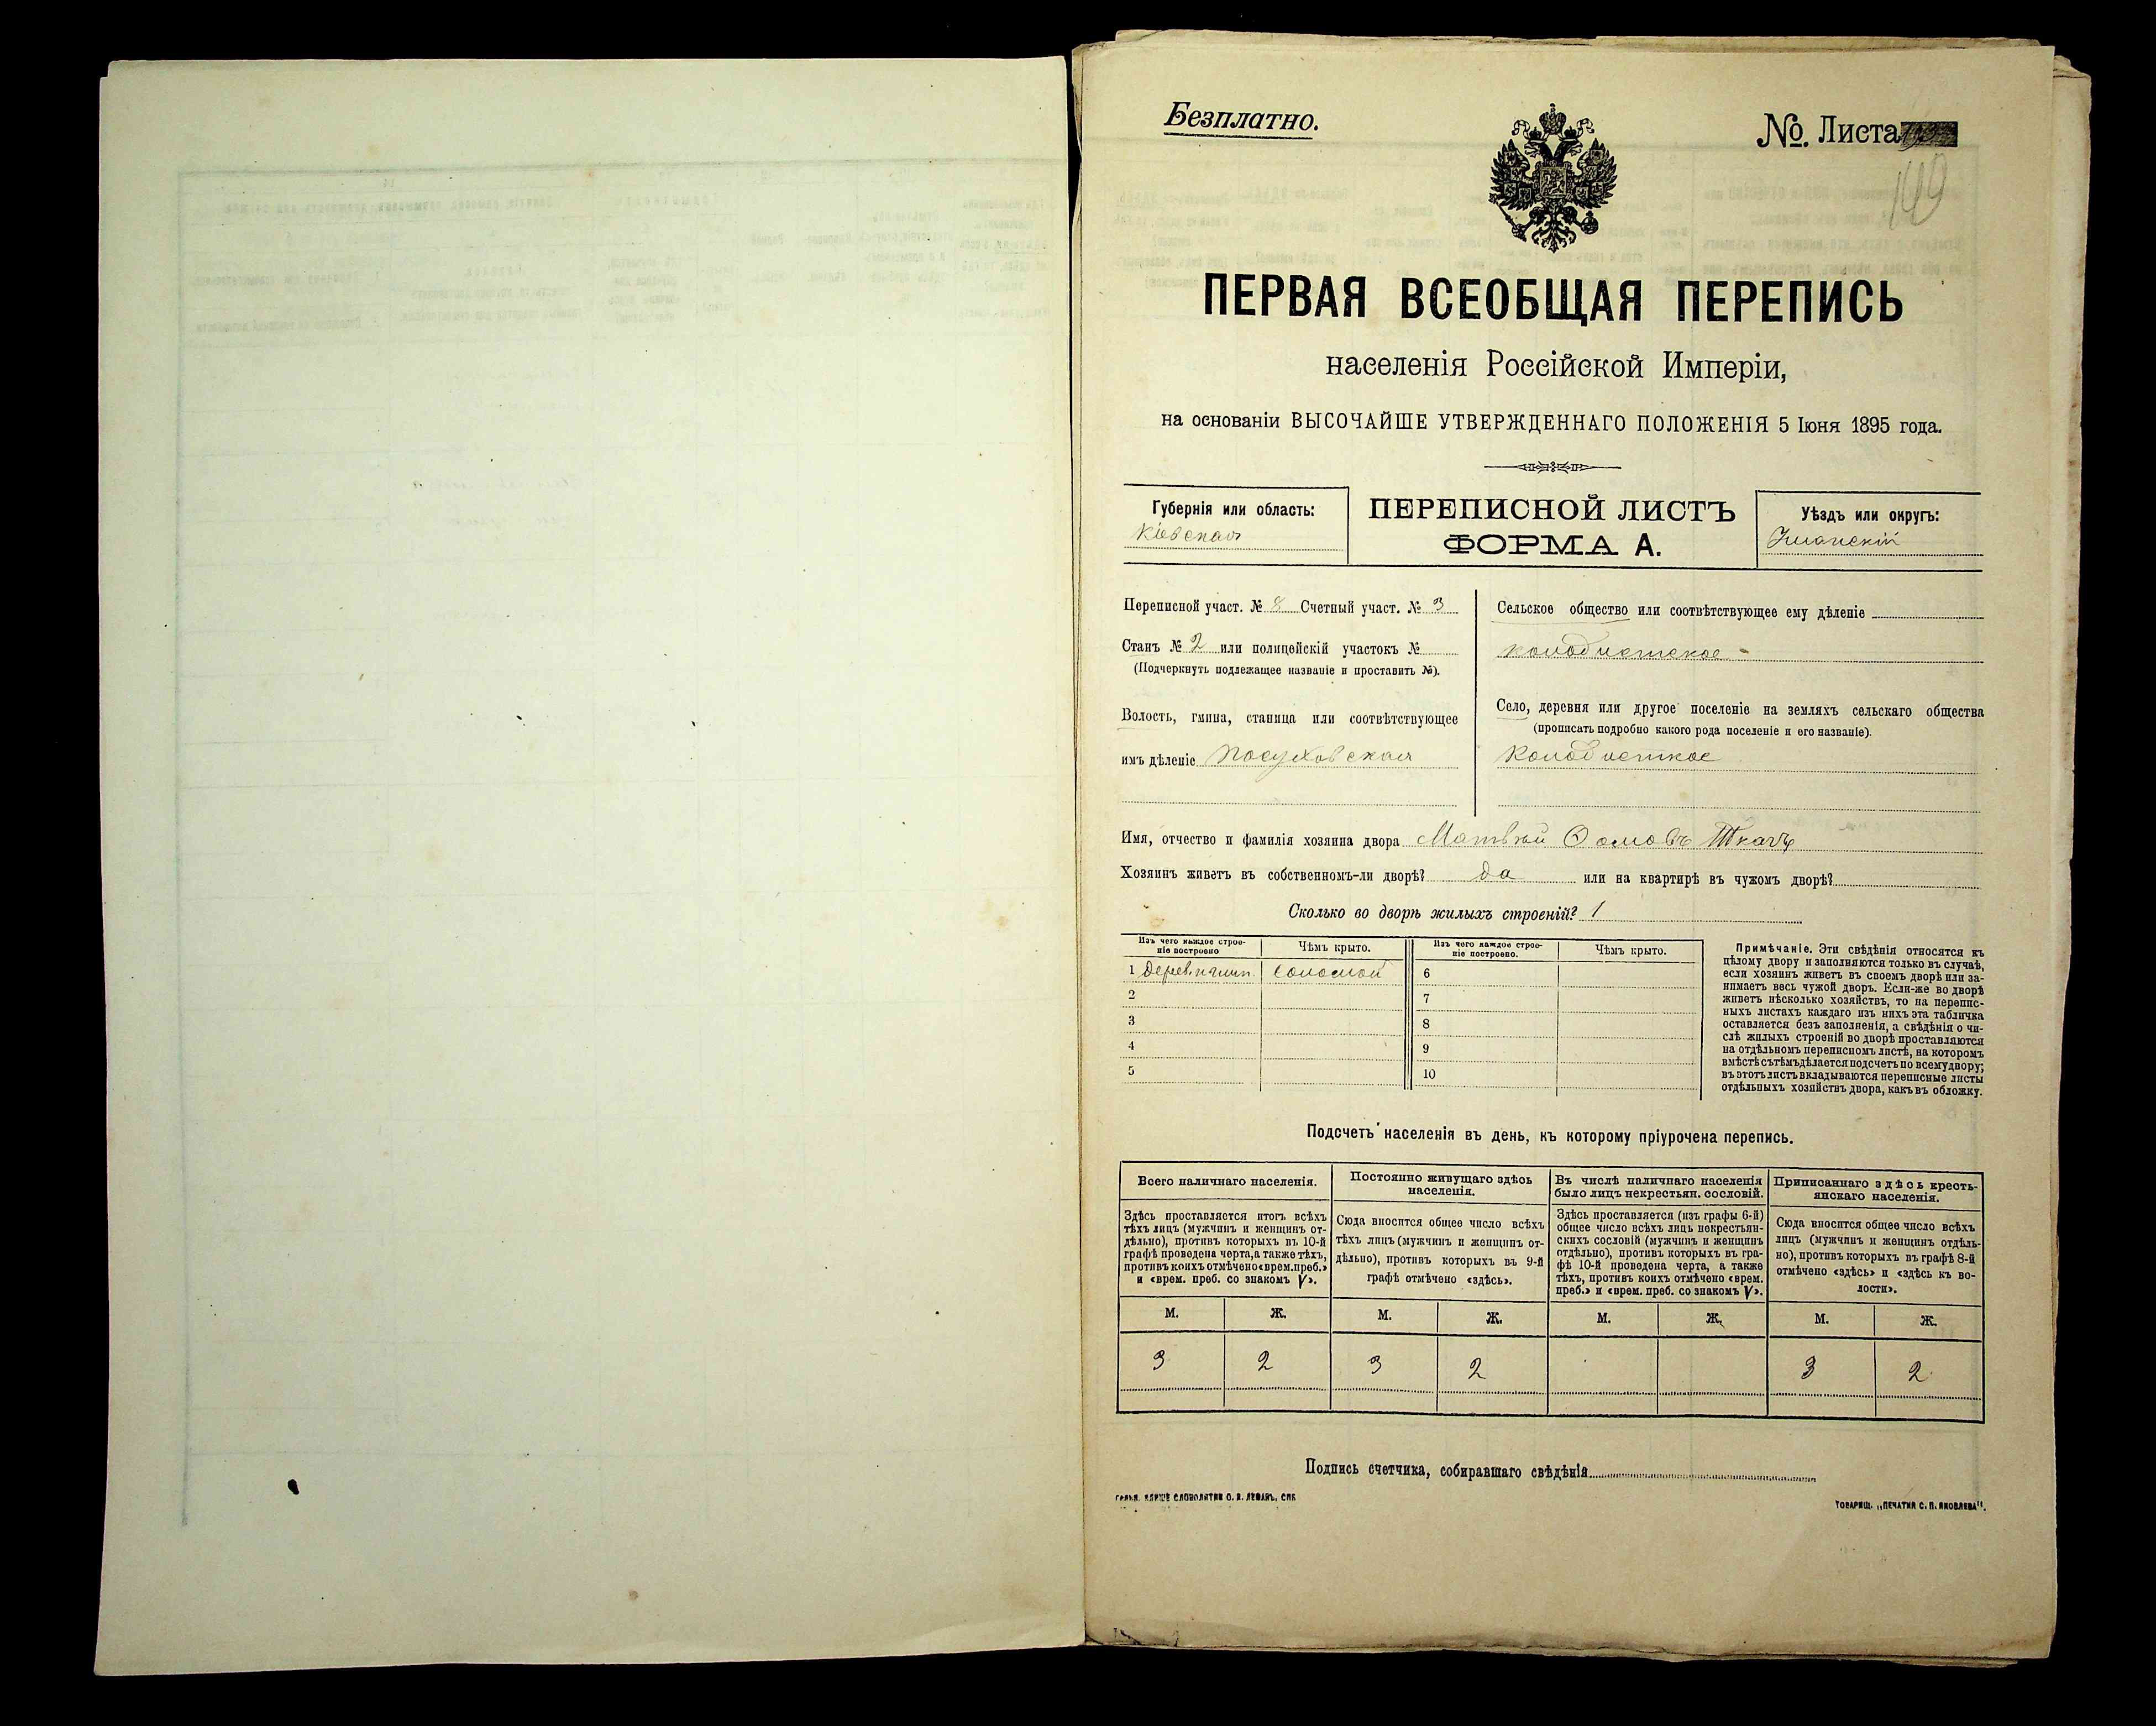 Безплатно.
№. Листа
149
ПЕРВАЯ ВСЕОБЩАЯ ПЕРЕПИСЬ
населенія Россійской Имперіи,
на основаніи ВЫСОЧАЙШЕ УТВЕРЖДЕННАГО ПОЛОЖЕНІЯ 5 Іюня 1895 года.
Губернія или область:
Кіевская
ПЕРЕПИСНОЙ ЛИСТЪ
ФОРМА А.
Уѣздъ или округъ:
Уманскій
Переписной участ. № 8 Счетный участ. № 3
Станъ № 2 или полицейскій участокъ №
(Подчеркнуть подлежащее названіе и проставить №).
Волость, гмина, станица или соотвѣтствующее
имъ дѣленіе Посуховская
Сельское общество или соотвѣтствующее ему дѣленіе
колодистское -
Село, деревня или другое поселеніе на земляхъ сельскаго общества
(прописать подробно какого рода поселеніе и его названіе).
Колодисткое
Имя, отчество и фамилія хозяина двора Матвѣй Ѳомовъ Ткачъ
Хозяинъ живетъ въ собственномъ-ли дворѣ? да или на квартирѣ въ чужомъ дворѣ?
Сколько во дворѣ жилыхъ строеній? 1
Изъ чего каждое строе-
ніе построено
Чѣмъ крыто.
Изъ чего каждое строе-
ніе построено.
Чѣмъ крыто.
1 дерев. и глин. соломой
2
3
4
5
6
7
8
9
10
Примѣчаніе. Эти свѣдѣнія относятся къ
цѣлому двору и заполняются только въ случаѣ,
если хозяинъ живетъ въ своемъ дворѣ или за-
нимаетъ весь чужой дворъ. Если-же во дворѣ
живетъ нѣсколько хозяйствъ, то на перепис-
ныхъ листахъ каждаго изъ нихъ эта табличка
оставляется безъ заполненія, а свѣдѣнія о чи-
слѣ жилыхъ строеній во дворѣ проставляются
на отдѣльномъ переписномъ листѣ, на которомъ
вмѣстѣ съ тѣмъ дѣлается подсчетъ по всему двору;
въ этотъ листъ вкладываются переписные листы
отдѣльныхъ хозяйствъ двора, какъ въ обложку.
Подсчетъ населенія въ день, къ которому пріурочена перепись.
Всего наличнаго населенія.
Здѣсь проставляется итогъ всѣхъ
тѣхъ лицъ (мужчинъ и женщинъ от-
дѣльно), противъ которыхъ въ 10-й
графѣ проведена черта, а также тѣхъ,
противъ коихъ отмѣчено «врем. преб.»
и «врем. преб. со знакомъ V».
Постоянно живущаго здѣсь
населенія.
Сюда вносится общее число всѣхъ
тѣхъ лицъ (мужчинъ и женщинъ от-
дѣльно), противъ которыхъ въ 9-й
графѣ отмѣчено «здѣсь».
Въ числѣ наличнаго населенія
было лицъ некрестьян. сословій.
Здѣсь проставляется (изъ графы 6-й)
общее число всѣхъ лицъ некрестьян-
скихъ сословій (мужчинъ и женщинъ
отдѣльно), противъ которыхъ въ гра-
фѣ 10-й проведена черта, а также
тѣхъ, противъ коихъ отмѣчено «врем.
преб.» и «врем. преб. со знакомъ V».
Приписаннаго здѣсь кресть-
янскаго населенія.
Сюда вносится общее число всѣхъ
лицъ (мужчинъ и женщинъ отдѣль-
но), противъ которыхъ въ графѣ 8-й
отмѣчено «здѣсь» и «здѣсь къ во-
лости».
М. Ж. М. Ж. М. Ж. М. Ж.
3 2 3 2 3 2
Подпись счетчика, собиравшаго свѣдѣнія
ТОВАРИЩ. „ПЕЧАТНЯ С. П. ЯКОВЛЕВА".